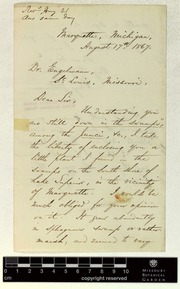 Rec'd Aug 21
Ans same day
Marquette, Michigan,
August 17th 1867.
Dr. Engelmann,
St. Louis, Missouri.
Dear Sir,
Understanding you
are still down in the swamps
among the Junci, So, I take
the liberty of enclosing you a
little plant I found in the
swamps on the south shore of
Lake Superior, in the vicinity
of Marquette. I would be
much obliged for your opinion
on it. It grew abundantly
in Sphagnous swamp or rather
marsh, and seemed to vary
MISSOURI
BOTANICAL
GARDEN